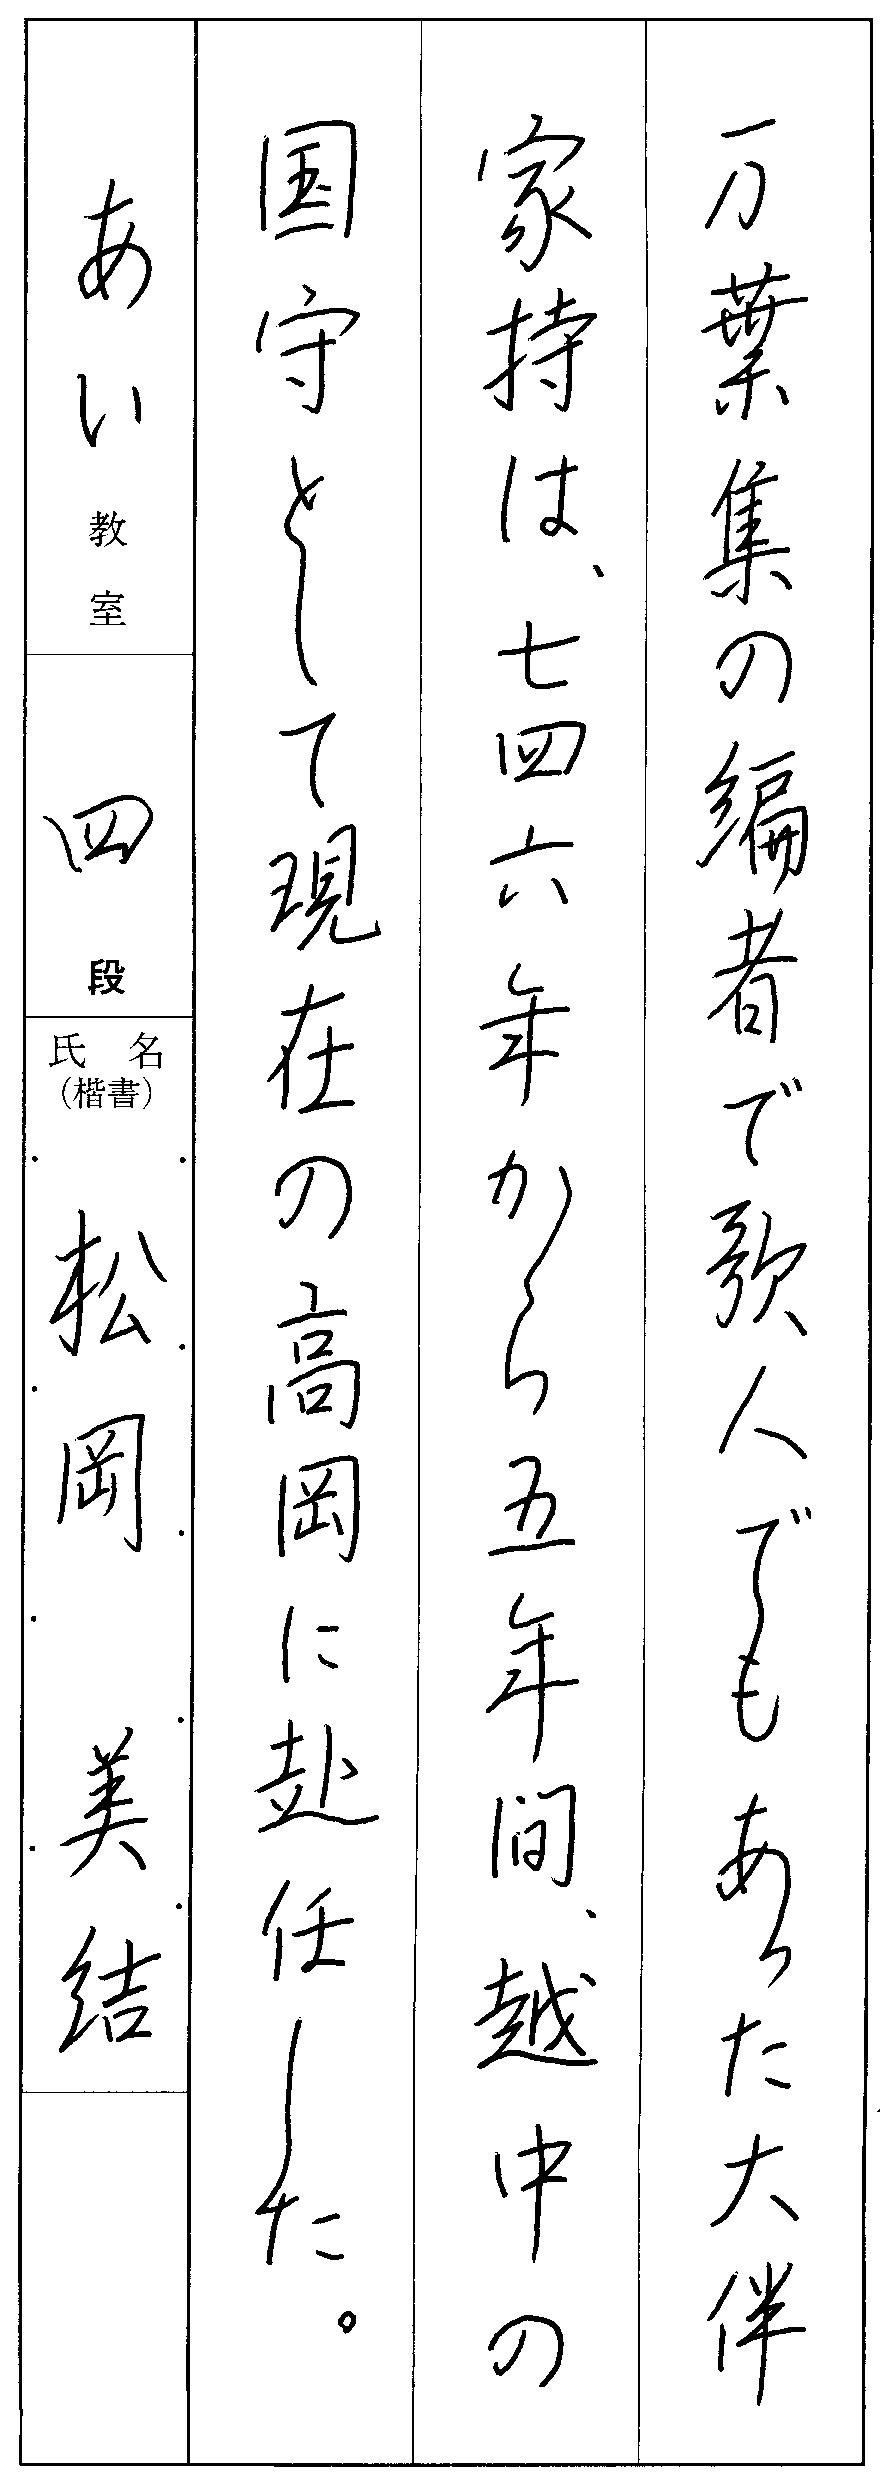 万葉集の編者で歌人でもあった大伴
家持は、七四六年から五年間、越中の
国守として現在の高岡に赴任した。
あい教室
四段
氏名
(楷書)
松岡 美結